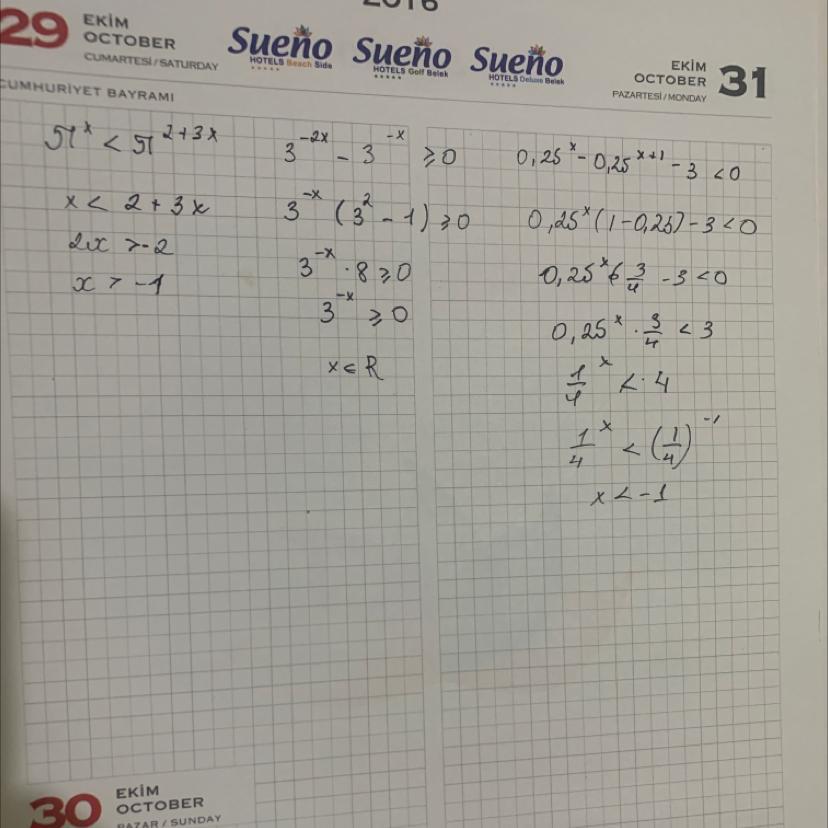 2016
29 EKİM
OCTOBER
CUMARTESİ/SATURDAY
CUMHURİYET BAYRAMI
Sueño
HOTELS Beach Side
Sueño
HOTELS Golf Belek
Sueño
HOTELS Deluxe Belek
EKİM
OCTOBER
PAZARTESİ/MONDAY
31
π^x < π^(2+3x)
x < 2+3x
2x > -2
x > -1
3^(-2x) - 3^(-x) ≥ 0
3^(-x) (3^2 - 1) ≥ 0
3^(-x) · 8 ≥ 0
3^(-x) ≥ 0
x ∈ R
0,25^x - 0,25^(x+1) - 3 < 0
0,25^x (1-0,25) - 3 < 0
0,25^x 3/4 - 3 < 0
0,25^x · 3/4 < 3
1/4^x < · 4
1/4^x < (1/4)^(-1)
x < -1
30 EKİM
OCTOBER
PAZAR / SUNDAY